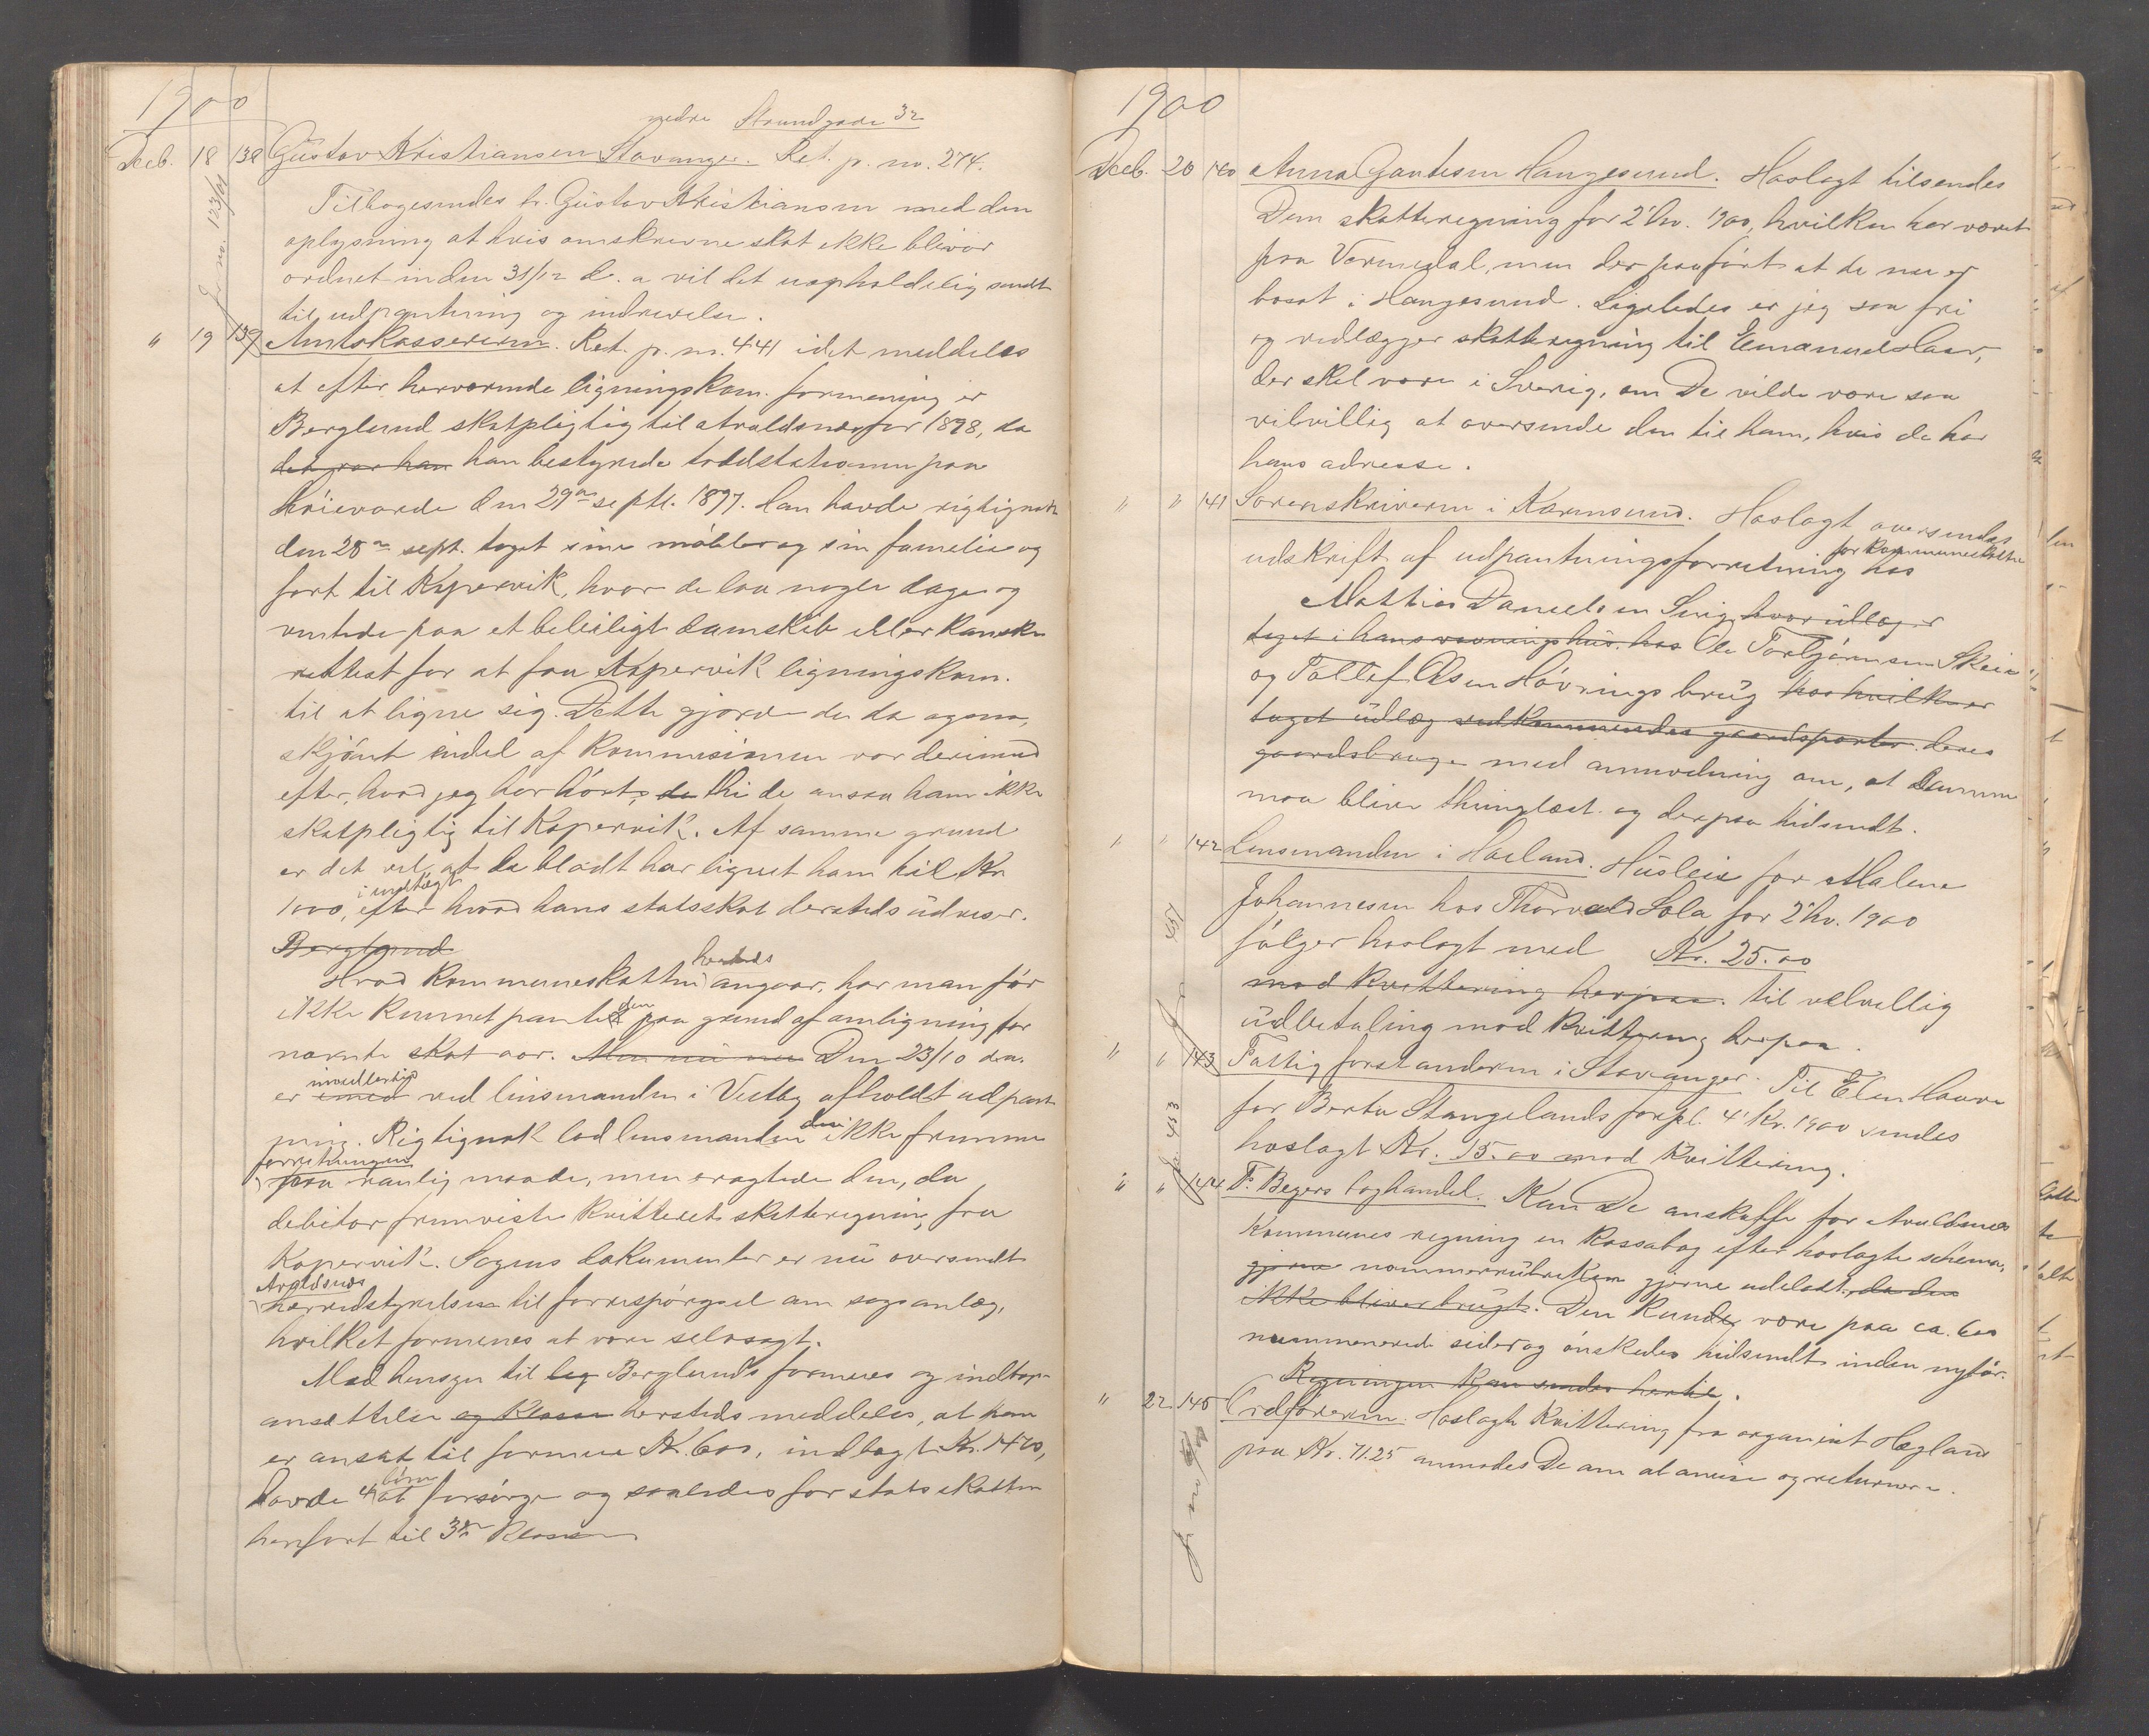 1900
nedre Strandgade 32
Deeb. 18 138 Gustav Kristiansen Stavanger. Ret. p. no. 274.
Tilbagesendes hr. Gustav Kristiansen med den
oplysning at hvis omskrevne skat ikke bliver
ordnet inden 31/12 d. a vil det uopholdelig sendt
til udpantning og inddrivelse.
J no. 123/01
" 19 139 Amtskassereren. Ret. p. no. 441 idet meddeles
at efter herværende ligningskom. formening er
Berglund skatpligtig til Avaldsnes for 1898, da
det var han han bestyrede toldstationen paa
Høievarde den 29de septb. 1897. Han havde rigtignok
den 28de sept. taget sine møbler og sin familie og
ført til Kopervik, hvor de laa nogle dage og
ventede paa et beleiligt damskib eller kanske
rettest for at faa Kopervik ligningskom.
til at ligne sig. Dette gjorde de da ogsaa,
skjønt endel af kommisionen var derimod
efter, hvad jeg har hørt, da thi de ansaa ham ikke
skatpligtig til Kopervik. Af samme grund
er det vel, at de blodt har lignet ham til Kr.
1000, i indtægt efter hvad hans statsskat dersteds udviser.
Berglund
Hvad kommuneskatten herteds angaar, har man før
ikke kunnet pantet den paa grund af omligning for
nævnte skat aar. Men nu Den 23/10 d.a.
er imidlertid ved linsmanden i Vestby afholdt udpant-
ning. Rigtignok lod lensmanden den ikke fremme
forretningen paa vanlig maade, men eragtede den, da
debitor fremviste kvitteret skatteregning fra
Kopervik. Sagens dokumenter er nu oversendt
Avaldsnes herredstyrelse til forrespørgsel om sagsanlæg,
hvilket formenes at være selvsagt.
Med hensyn til Berglunds formues og indtægts-
ansættelse og klasse hersteds meddeles, at han
er ansat til formue Kr. 600, indtægt Kr. 1420,
havde 4 børn at forsørge og saaledes for statsskatten
henført til 3de klasse
1900
Deeb. 20 140 Anna Gautesen Haugesund. Hoslagt tilsendes
Dem skatteregning for 2' hv. 1900, hvilken har været
paa Vormedal, men der paaført at de nu er
bosat i Haugesund. Ligeledes er jeg saa fri
og vedlægger skatteregning til Emanuel Haar,
der skal være i Sverig, om De vilde være saa
vilvillig at oversende den til ham, hvis de har
hans adresse.
" " 141 Sorenskriveren i Karmsund. Hoslagt oversendes
udskrift af udpantningsforretning for kommuneskatter hos
Mattias Danielsen Sevig, hvor udlæg er
taget i hans vaaningshus. hos Ole Torbjørnsen Skeie
og Tollef Olsen Høvrings brug hos hvilke er
taget udlæg vedkommendes gaardsparter deres
gaardsbruge med anmodning om, at denne
maa blive thinglæst og derpaa hidsendt.
" " 142 Lensmanden i Haaland. Husleie for Malene
Johannesen hos Thorvald Sola for 2' hv. 1900
følger hoslagt med Kr. 25.00
mod kvittering herpaa. til velvillig
udbetaling mod kvittering herpaa.
" " 143 Fattigforstanderen i Stavanger. Til Elen Haavr
for Berta Stangelands forpl. 4' kv. 1900 sendes
hoslagt Kr. 15.00 mod kvittering.
" " 144 F. Beyers boghandel. Kan De anskaffe for Avaldsnes
Kommunes regning en kassabog efter hoslagte schema,
gjerne nommerrubrikken gjerne udeladt, da den
ikke bliver brugt. Den kunde være paa ca. 600
nummererede sider og ønskedes hidsendt inden nytår.
Regningen kan sendes hertil.
" 22. 145 Ordføreren. Hoslagte kvittering fra organist Hegland
paa Kr. 71.25 anmodes De om at anvise og returnere.